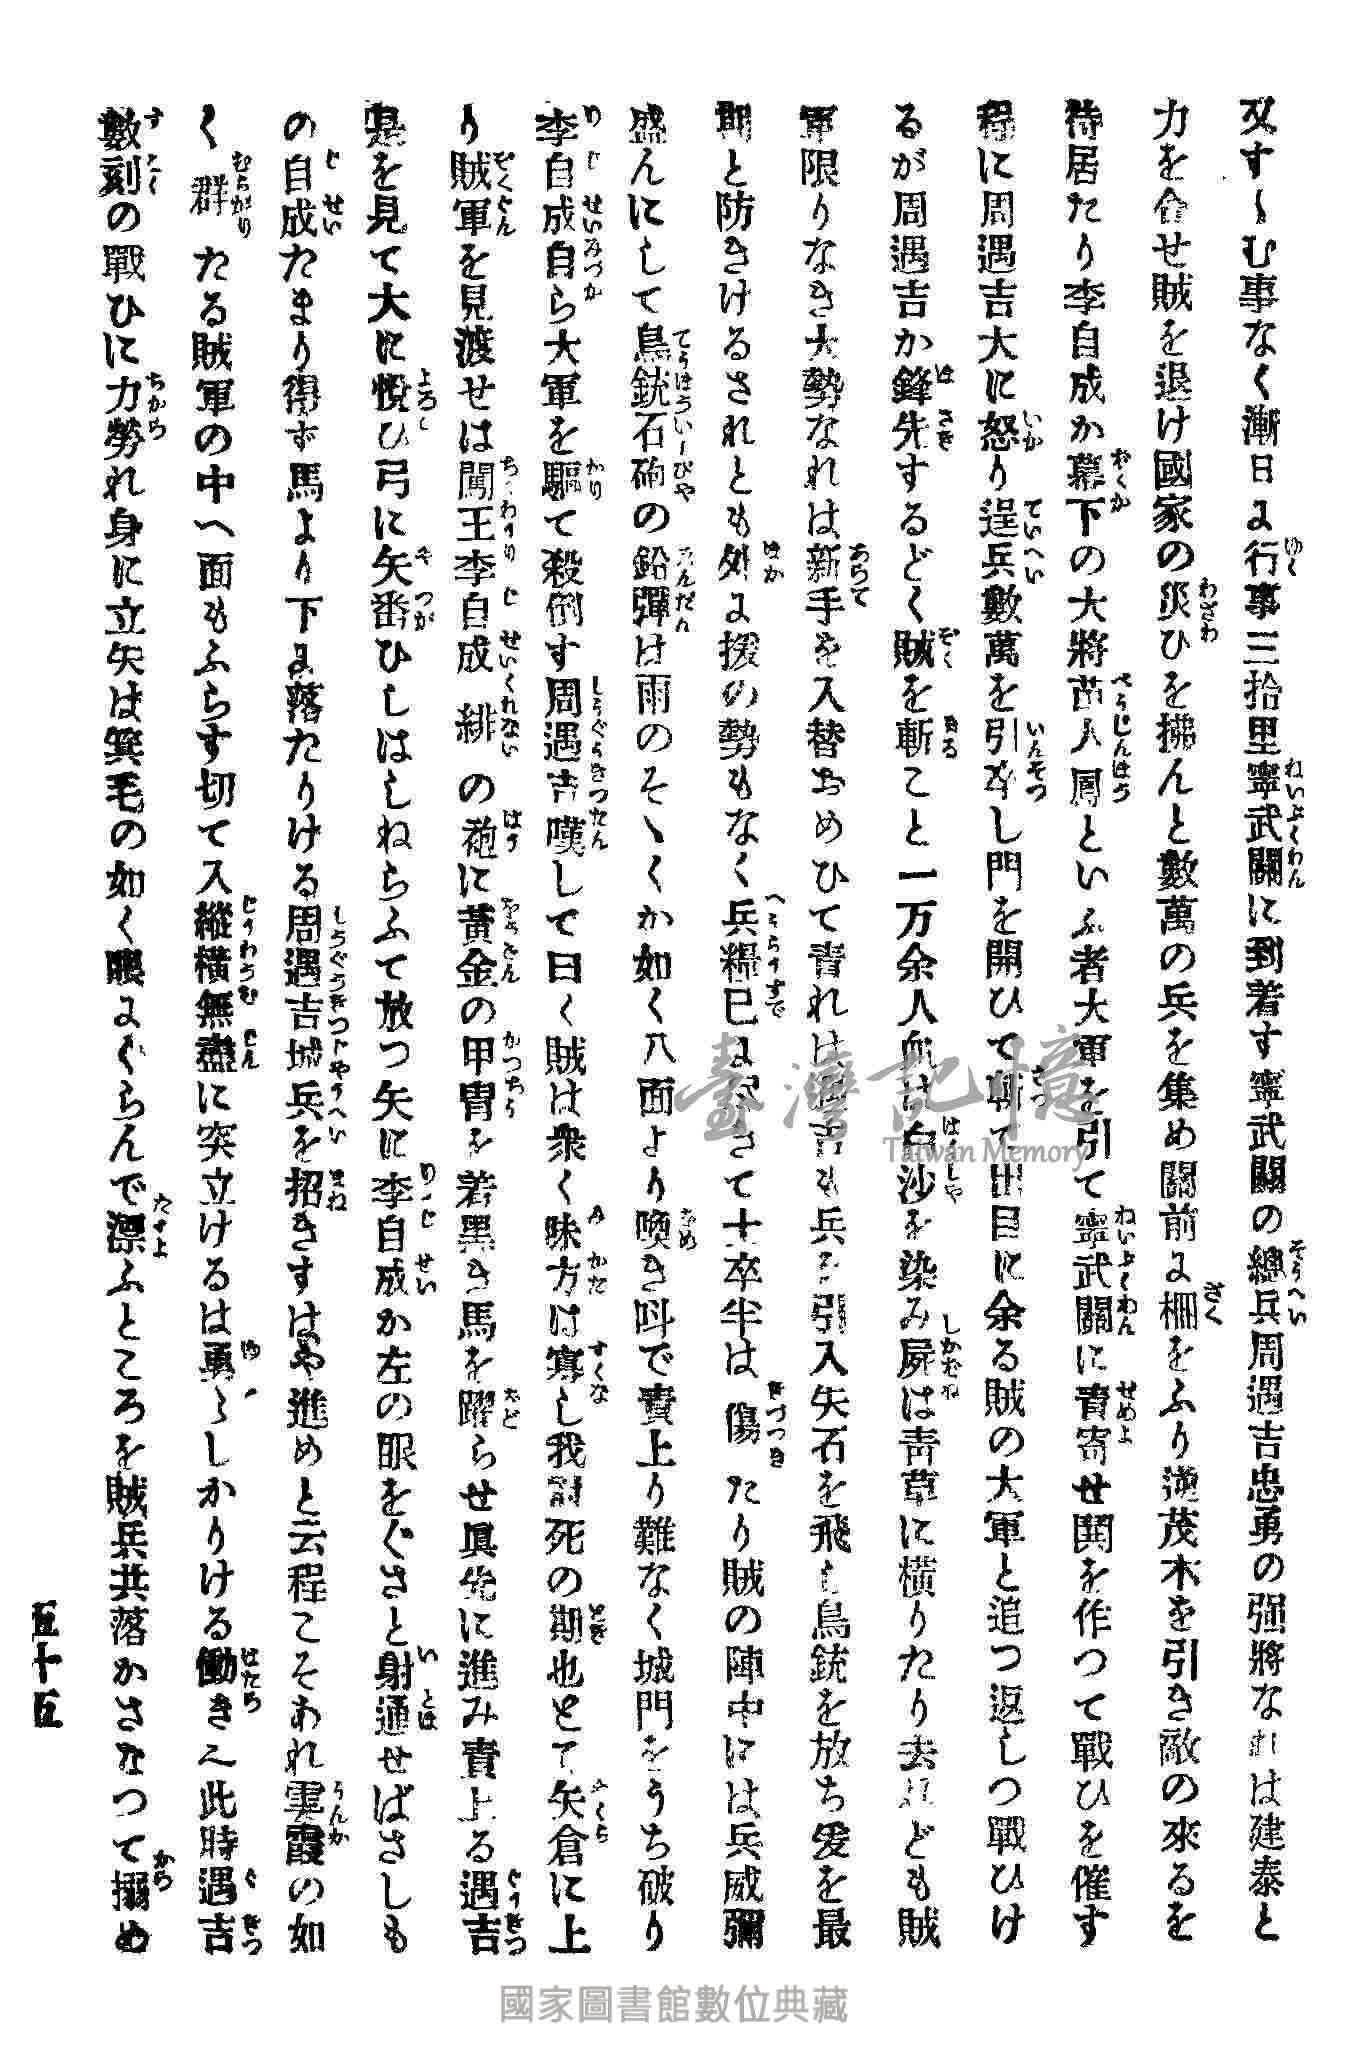 叉すゝむ事なく漸日に行事三拾里寧武關に到着す寧武關の總兵周遇吉忠勇の强將なれは建泰と
力を合せ賊を退け國家の災ひを拂んと數萬の兵を集め關前に柵をふり逆茂木を引き敵の來るを
待居たり李自成か幕下の大將苗人鳳といふ者大軍を引て寧武關に責寄せ鬨を作つて戰ひを催す
程に周遇吉大に怒り逞兵數萬を引率し門を開ひて斬て出目に余る賊の大軍と追つ返しつ戰ひけ
るが周遇吉か鋒先するどく賊を斬こと一万余人血は白沙を染み屍は靑草に橫りたり去れども賊
軍限りなき大勢なれは新手を入替おめひて責れは遇吉も兵を引入矢石を飛し鳥銃を放ち爰を最
期と防きけるされとも外に援の勢もなく兵糧已に尽きて士卒半は傷たり賊の陣中には兵威彌
盛んにして鳥銃石砲の鉛彈は雨のそゝくか如く八面より喚き呌で責上り難なく城門をうち破り
李自成自ら大軍を驅て殺倒す周遇吉嘆して曰く賊は衆く味方は寡し我討死の期也とて矢倉に上
り賊軍を見渡せは闖王李自成緋の袍に黃金の甲冑を着黑き馬を躍らせ眞先に進み責上る遇吉
是を見て大に悅ひ弓に矢番ひしはしねらふて放つ矢に李自成か左の眼をぐさと射通せばさしも
の自成たまり得ず馬より下に落たりける周遇吉城兵を招きすはや進めと云程こそあれ雲霞の如
く群たる賊軍の中へ面もふらす切て入縱橫無盡に突立けるは勇々しかりける働き也此時遇吉
數刻の戰ひに力勞れ身に立矢は箕毛の如く眼にくらんで漂ふところを賊兵共落かさなつて搦め
五十五
臺灣記憶
Taiwan Memory
國家圖書館數位典藏